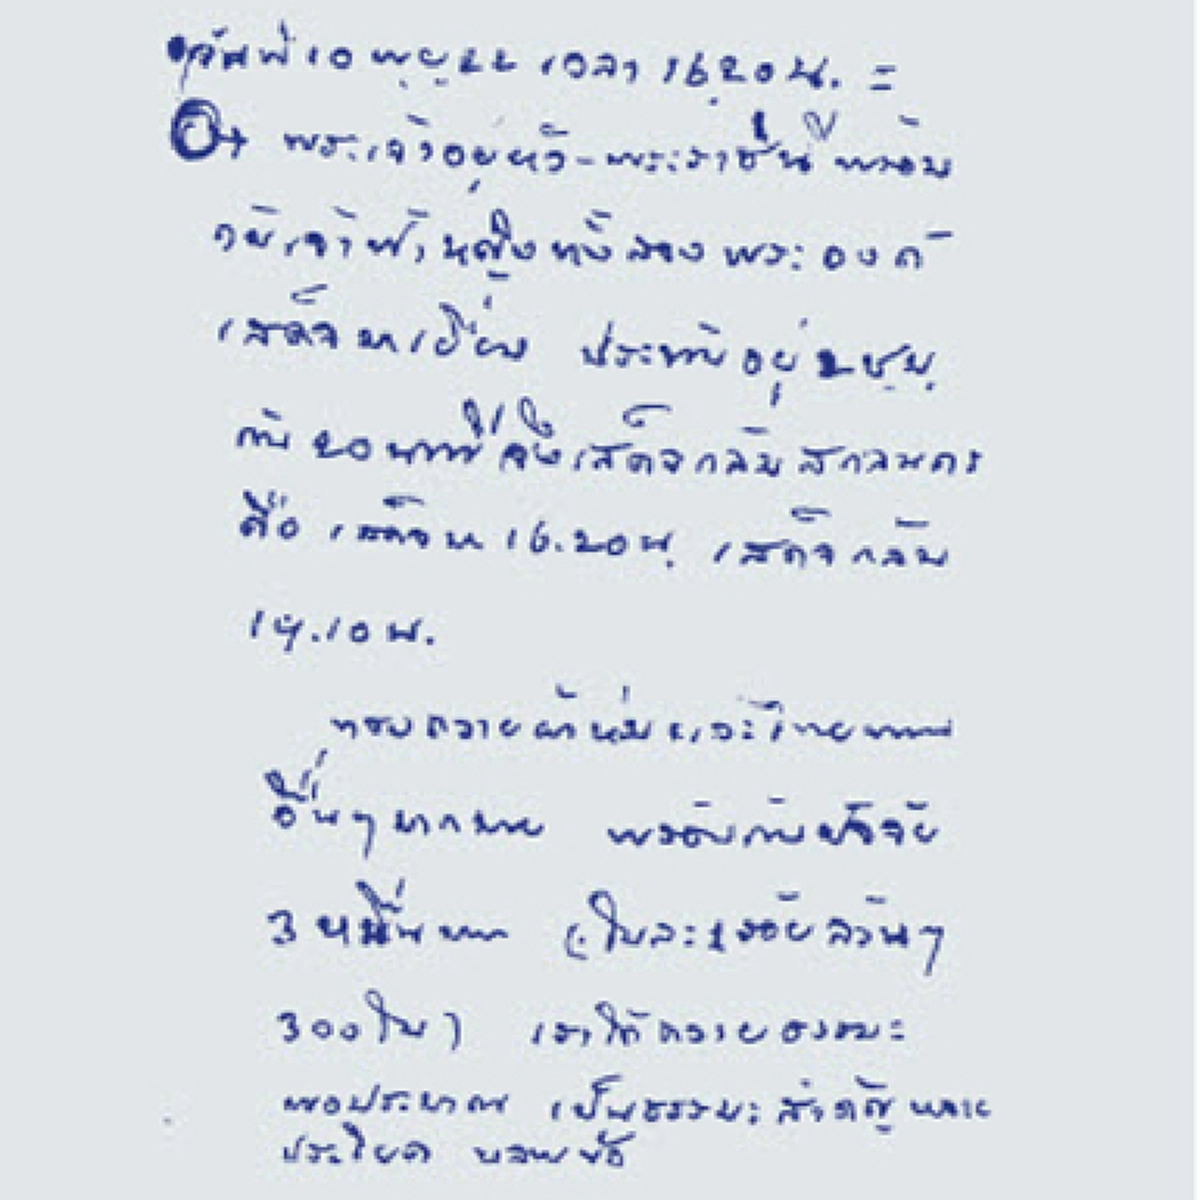 วันที่ 10 พ.ย. 22 เวลา 16.20 น. =
พระเจ้าอยู่หัว-พระราชินี พร้อม
กับเจ้าฟ้าหญิงทั้งสองพระองค์
เสด็จมาเยี่ยม ประทับอยู่ 2 ช.ม.
กับ 20 นาที จึงเสด็จกลับสกลนคร
คือ เสด็จมา 16.20 น. เสด็จกลับ
19.10 น.
ทรงถวายผ้าห่มและไทยทาน
อื่นๆ มากมาย พร้อมกับปัจจัย
3 หมื่นบาท (ใบละ 1 ร้อยล้วนๆ
300 ใบ) เราได้ถวายธรรมะ
พอประมาณ เป็นธรรมะสำคัญหลาย
ประโยค หลายข้อ